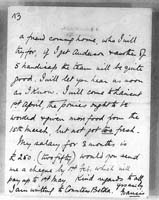 13
a friend coming home, who I will
try for, if I get Anderson & another of
5 handicap the team will be quite
good. I will let you hear as soon
as I know. I will come to
1st April, the ponies ought to be
worked & given more food from the
15th March, but not got too fresh.
My salary for 2 months is
£250 (two fifty) would you send
me a cheque by 1st Feb. which will
pay up to 1st May. Kind regards to all
yours sincerely
I am writing to